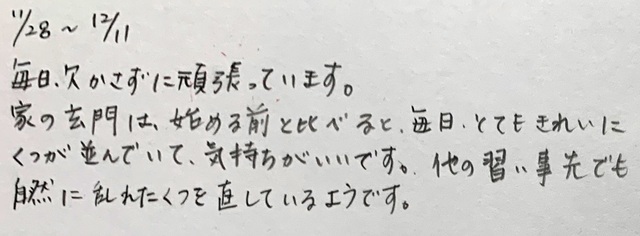 11/28 ~ 12/11
毎日、欠かさずに頑張っています。
家の玄関は、始める前と比べると、毎日、とてもきれいに
くつが並んでいて、気持ちがいいです。他の習い事先でも
自然に乱れたくつを直しているようです。